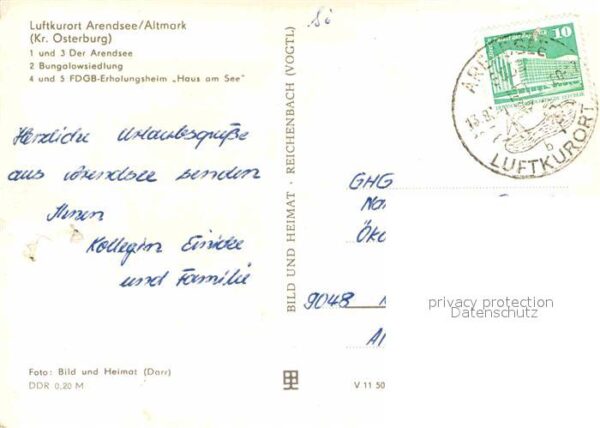 Luftkurort Arendsee/Altmark
(Kr. Osterburg)
1 und 3 Der Arendsee
2 Bungalowsiedlung
4 und 5 FDGB-Erholungsheim „Haus am See"
Herzliche Urlaubsgrüße
aus Arendsee senden
Ihnen
Kollegin
und Familie
Foto: Bild und Heimat (Darr)
DDR 0,20 M
BILD UND HEIMAT · REICHENBACH (VOGTL)
V 11 50
10
ARENDSEE
LUFTKURORT
b
GHG
Öko
9048
privacy protection
Datenschutz